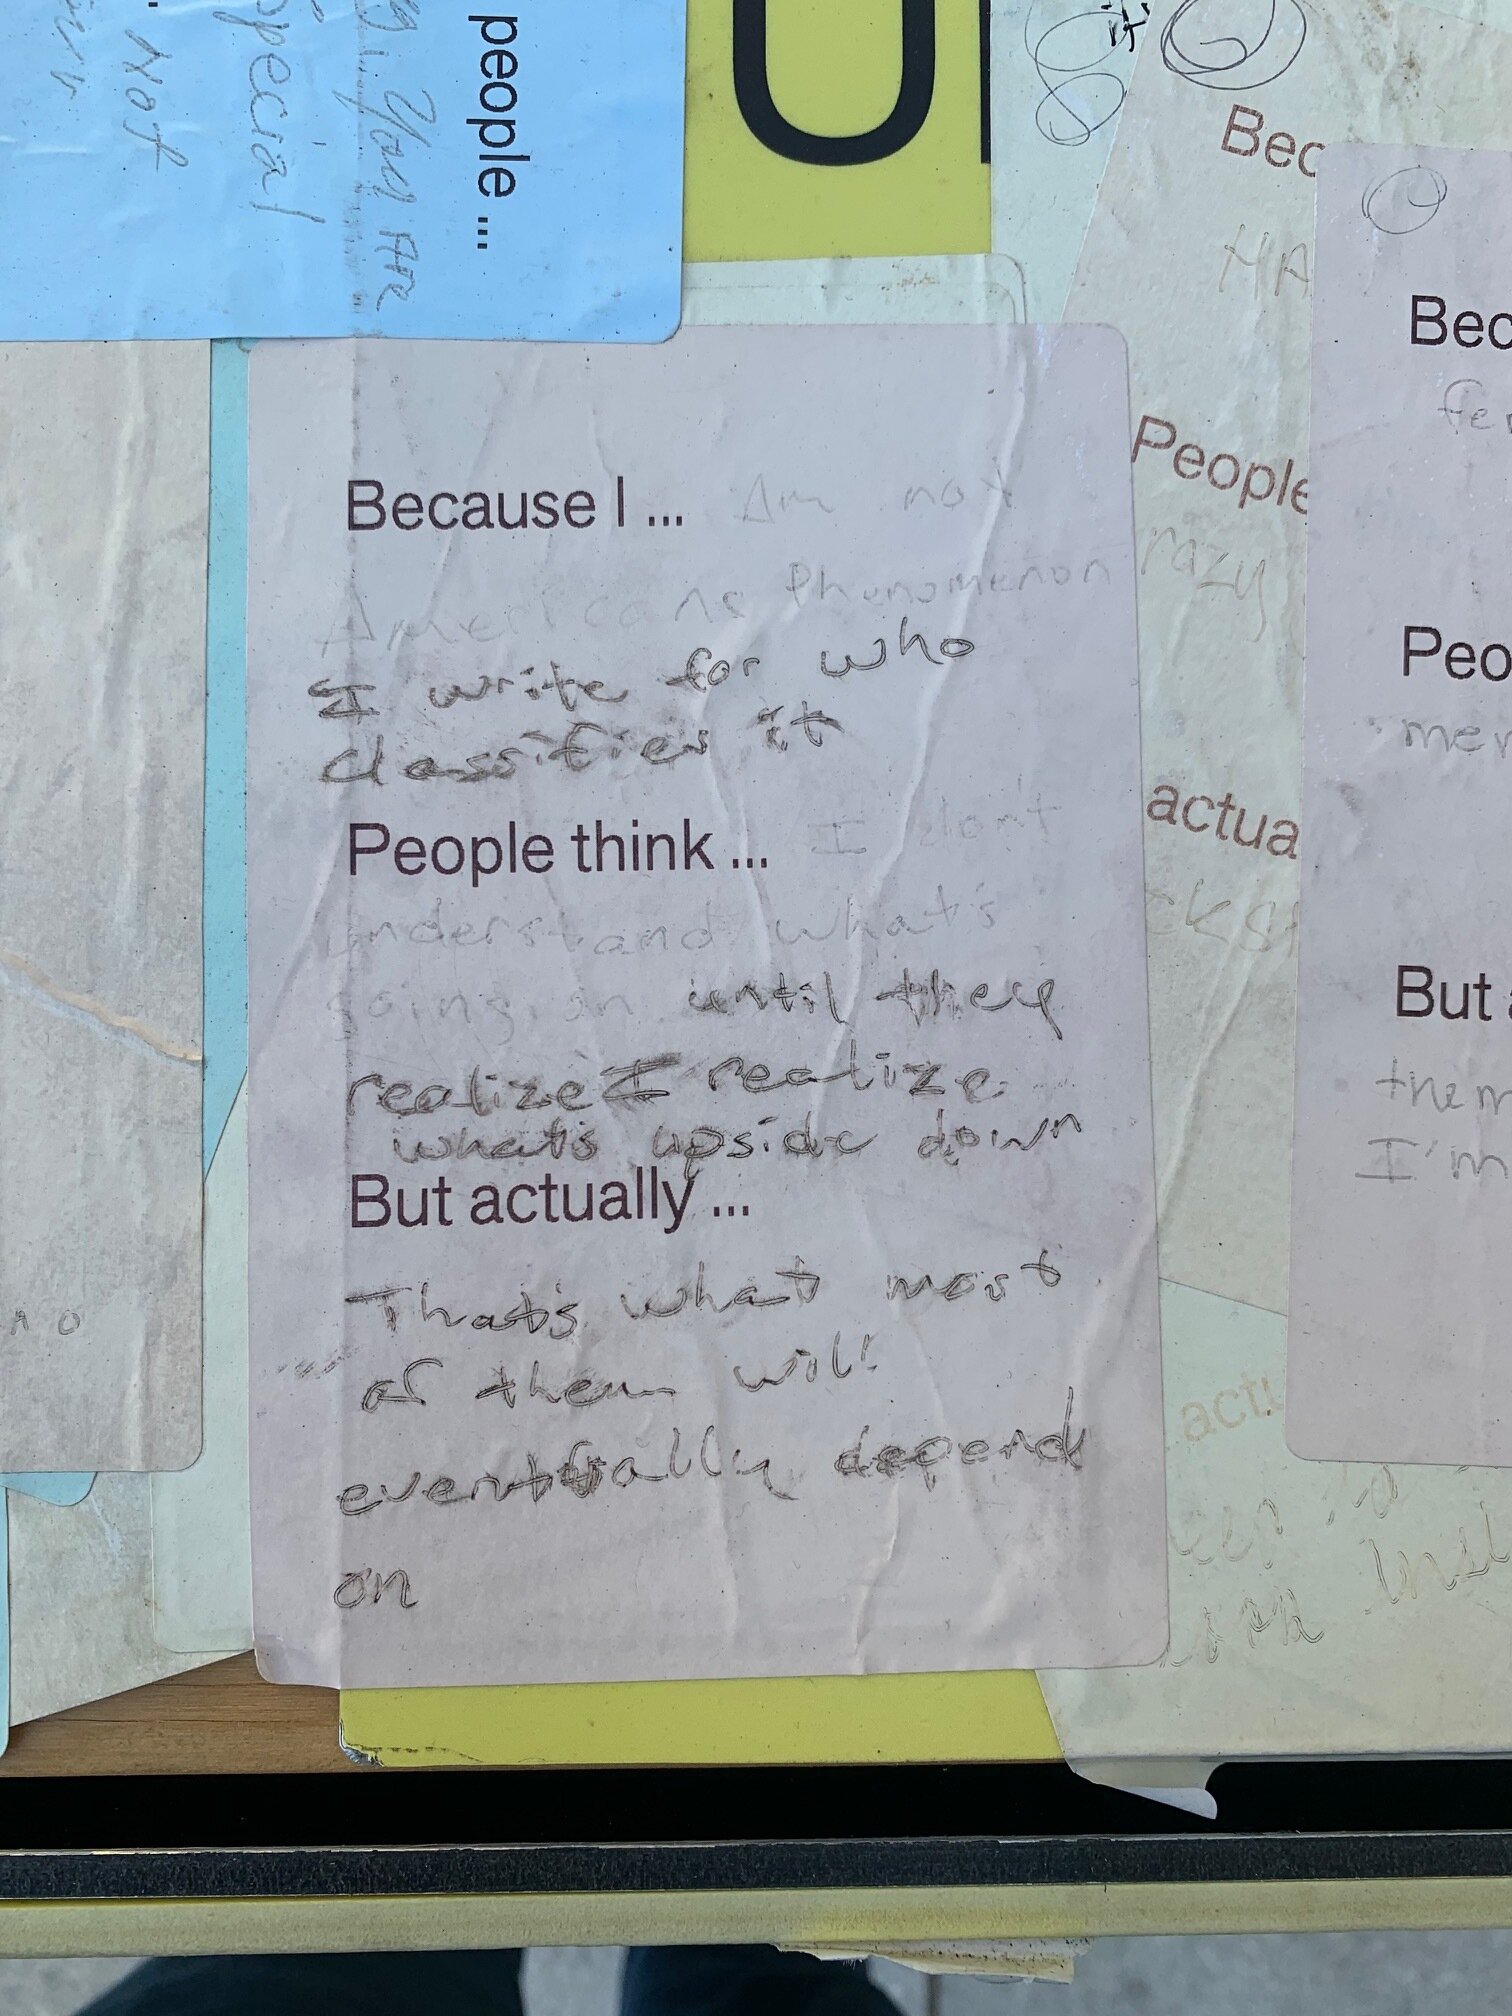 people ...
You Are
special
Not
U
Bec
HA
People
razy
actua
cks
actu
Bec
fer
Peo
mer
But a
them
I'm
Because I ... Am not
Americans Phenomenon
I write for who
classifies it
People think ... I don't
understand what's
going on until they
realize I realize
what's upside down
But actually ...
That's what most
of them will
eventually depend
on
no